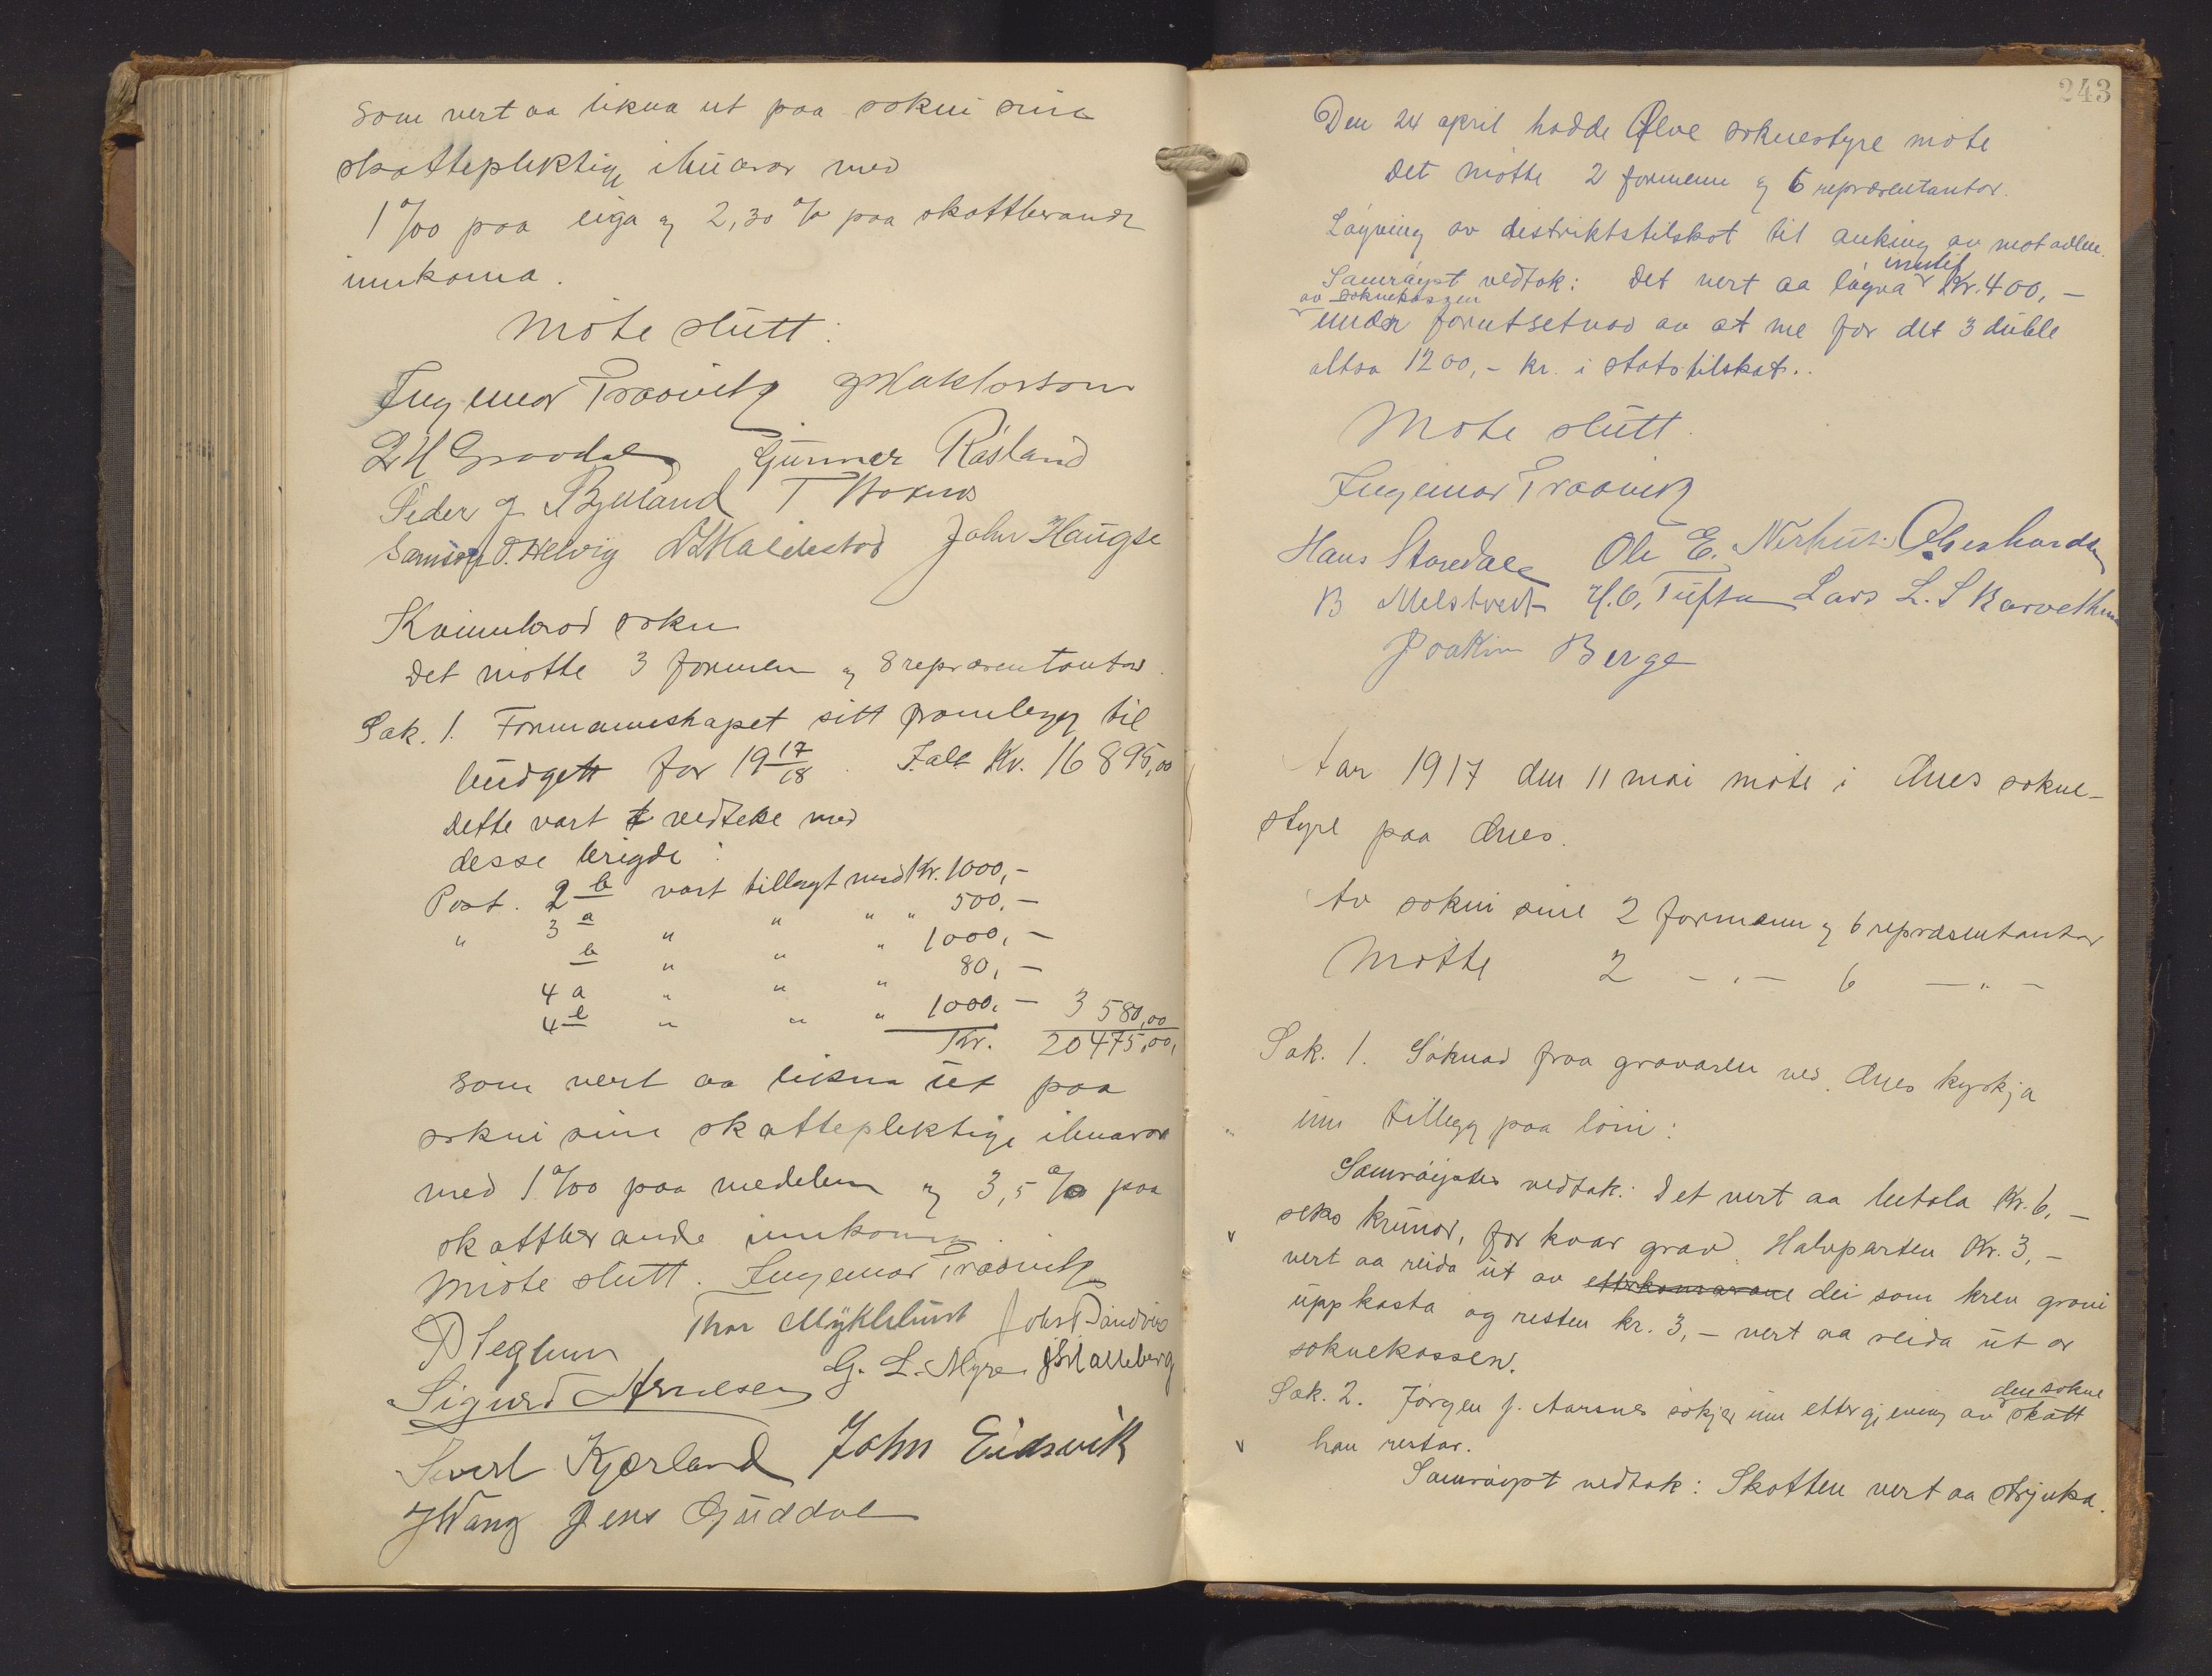 som vert aa likna ut paa sokni sine
skattepliktige ibuarar med
1 ‰ paa eiga og 2,30 % paa skattberande
innkoma.
Møte slutt:
Ingemar Traavik Haktorson
Gunnar Røsland
Peder J Bjelland T
Samson O. Helvig John Haugse
Kvinnherad sokn
Det møtte 3 formenn og 8 representantar.
Sak. 1. Formannskapet sitt framlegg til
budgett for 19 17/18. Ialt Kr. 16 895,00
Dette vart vedteke med
desse brigde:
Post. 2 b vart tillagt med Kr. 1000,-
" 3 a " " " " 500,-
b " " " 1000,-
4 a " " " 80,-
4 e " " " 1000,- 3 580,00
Kr. 20 475,00,
som vert aa likna ut paa
sokni sine skattepliktige ibuarar
med 1 ‰ paa medelen og 3,5 % paa
skattberande innkoma.
Møte slutt. Ingemar Traavik
Thor Myklebust Johs T Sandvik
G. L. Myre
Sigurd Arnesen
Sivert Kjærland John Eidsvik
J Wang Jens Guddal
243
Den 24 april hadde Ølve soknestyre møte
Det møtte 2 formenn og 6 representantar.
Løyving av distriktstilskot til auking av matavlen.
Samrøyst vedtok: Det vert aa løyva inntil Kr. 400,-
av soknekassen
under forutsetnad av at me får det 3 duble
altsa 1200,- kr. i statstilskot..
Møte slutt.
Ingemar Traavik
Hans Storedale Ole E. Nerhus.
B Melstveit H. O. Tufta Lars L. Skarvethun
Joakim Berge
Aar 1917 den 11 mai møte i Ænes sokne-
styre paa Ænes.
Av sokni sine 2 formenn og 6 representantar
Møtte 2 - " - 6 - " -
Sak. 1. Søknad fraa gravaren ved Ænes kyrkja
um tillegg paa løni:
Samrøystes vedtak: Det vert aa betala Kr. 6,-
seks krunor, for kvar grav. Halvparten Kr. 3,-
vert aa reida ut av etterkomarane dei som krev gravi
uppkasta og resten kr. 3,- vert aa reida ut av
soknekassen.
Sak. 2. Jørgen J. Aarsnes søkjer um ettergjeving av den sokne
skatt
han restar.
Samrøyst vedtak: Skatten vert aa strjuka.